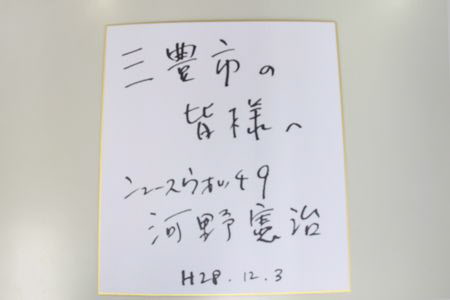 三豊市の
皆様へ
ニュースウオッチ9
河野憲治
H28.12.3